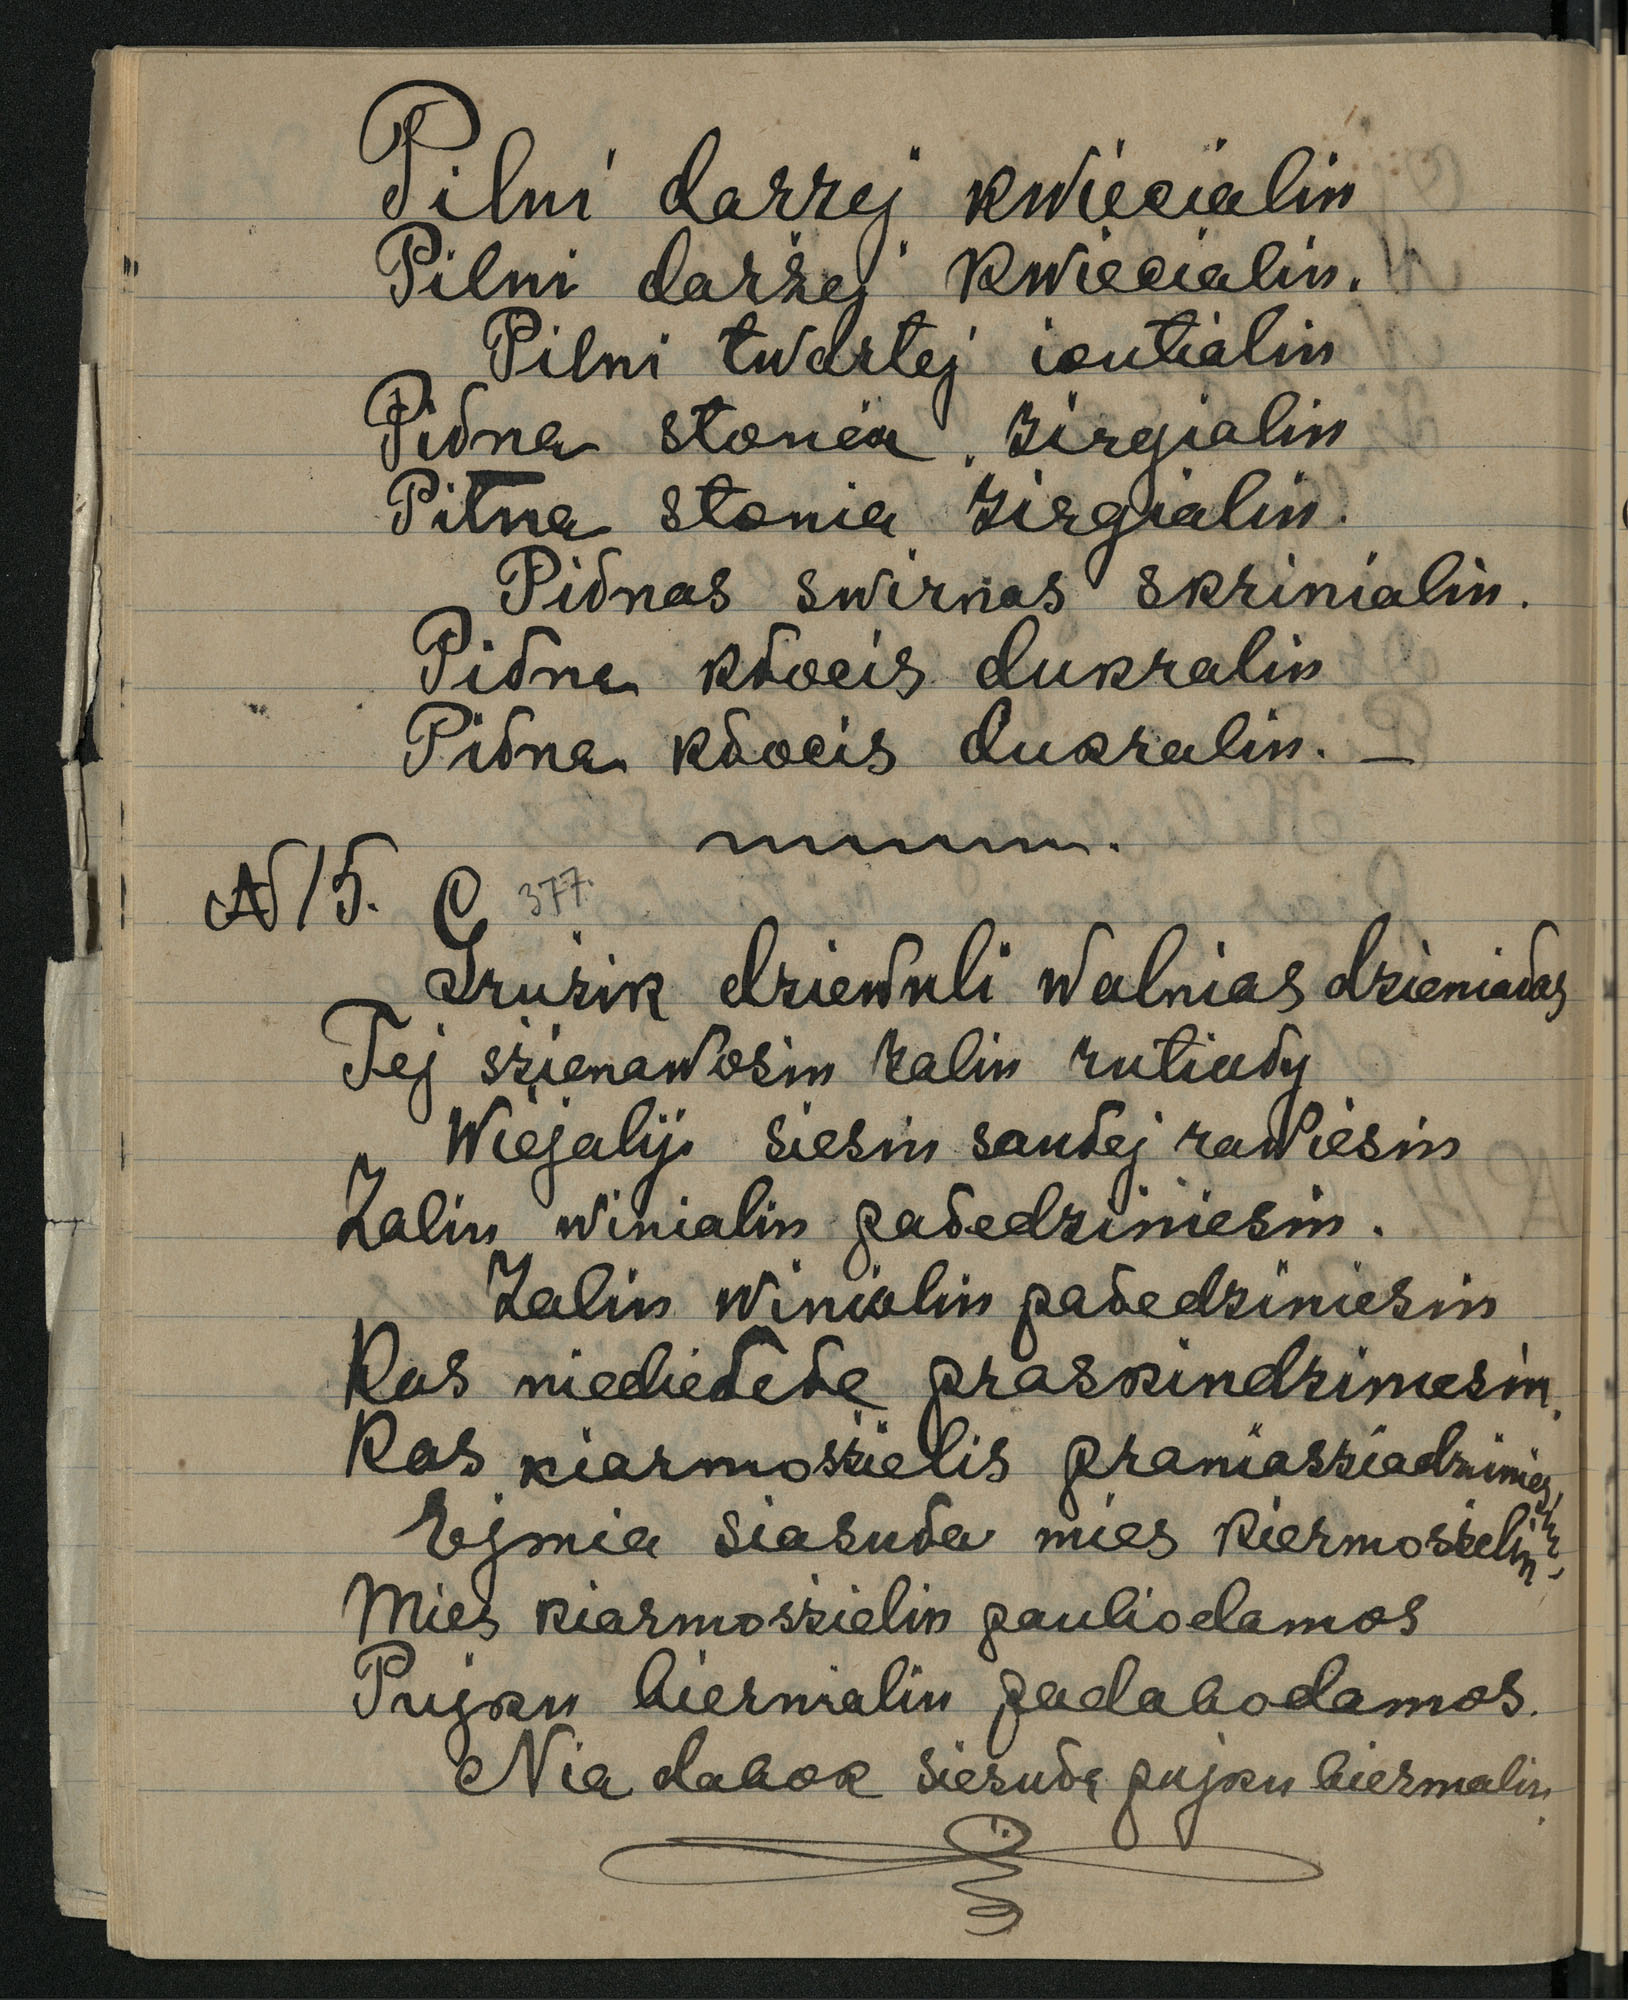 Pilni darżej kwiecialin
Pilni darżej kwiecialin.
Pilni twartej iautialin
Piłna stonia żirgialin
Piłna stonia żirgialin.
Piłnas swirnas skrinialin.
Piłna kłocis dukralin
Piłna kłocis dukralin. —
N 15. 377.
Grużik dziewuli walnias dzieniałas
Tej sżienawosin żalin rutiały
Wiejalij siesin saułej rawiesin
Żalin winialin pałedziniesin.
Żalin winialin pałedziniesin
Kas niediełełe praskindzinesin.
Kas kiarmosżielis praniasziadzinies
Ejmia siasuła mies kiermosżielin
Mies kiarmosżielin pauliodamos
Pujku biernialin padabodamos.
Nia dabok siesułe pujku biernialin.